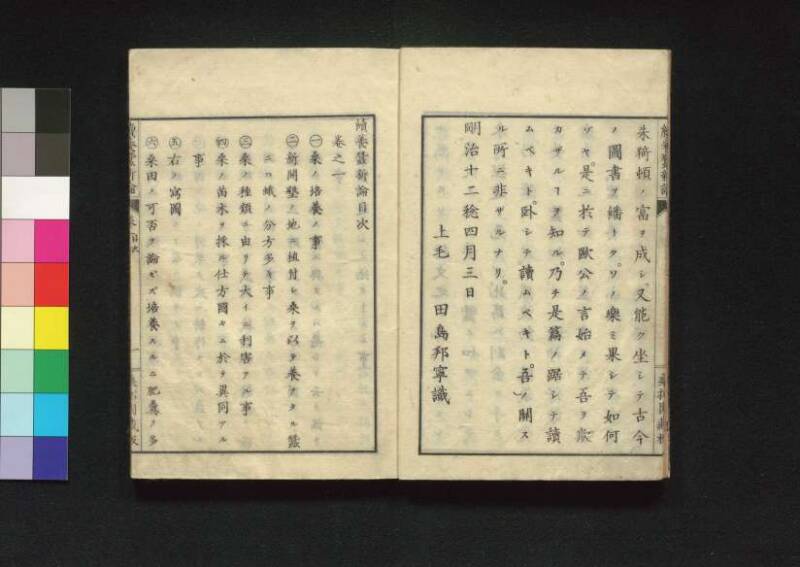 朱猗頓ノ富ヲ成シ又能ク坐シテ古今
ノ圖書ヲ繙トク、ソノ樂ミ果シテ如何
ゾヤ。是ニ於テ歐公ノ言始メテ吾ヲ欺
カザルヿヲ知ル。乃チ是篇ノ踞シテ讀
ムベキト、臥シテ讀ムベキト、吾ノ關ス
ル所ニ非ザルナリ。
明治十二稔四月三日
上毛 田島邦寧識
續養蠶新論目次
卷之一
㊀桑ノ培養ノ事
㊁新開墾ノ地ニ植付シ桑ヲ以テ養ヒタル蠶
ニハ蛾ノ分方多キ事
㊂桑ノ種類ニ由リテ大イニ利害アル事
㊃桑ノ苗木ヲ採ル仕方國々ニ於テ異同アル
事
㊄右ノ寫圖
㊅桑田ノ可否ヲ論ゼズ培養スルニ肥糞ノ多